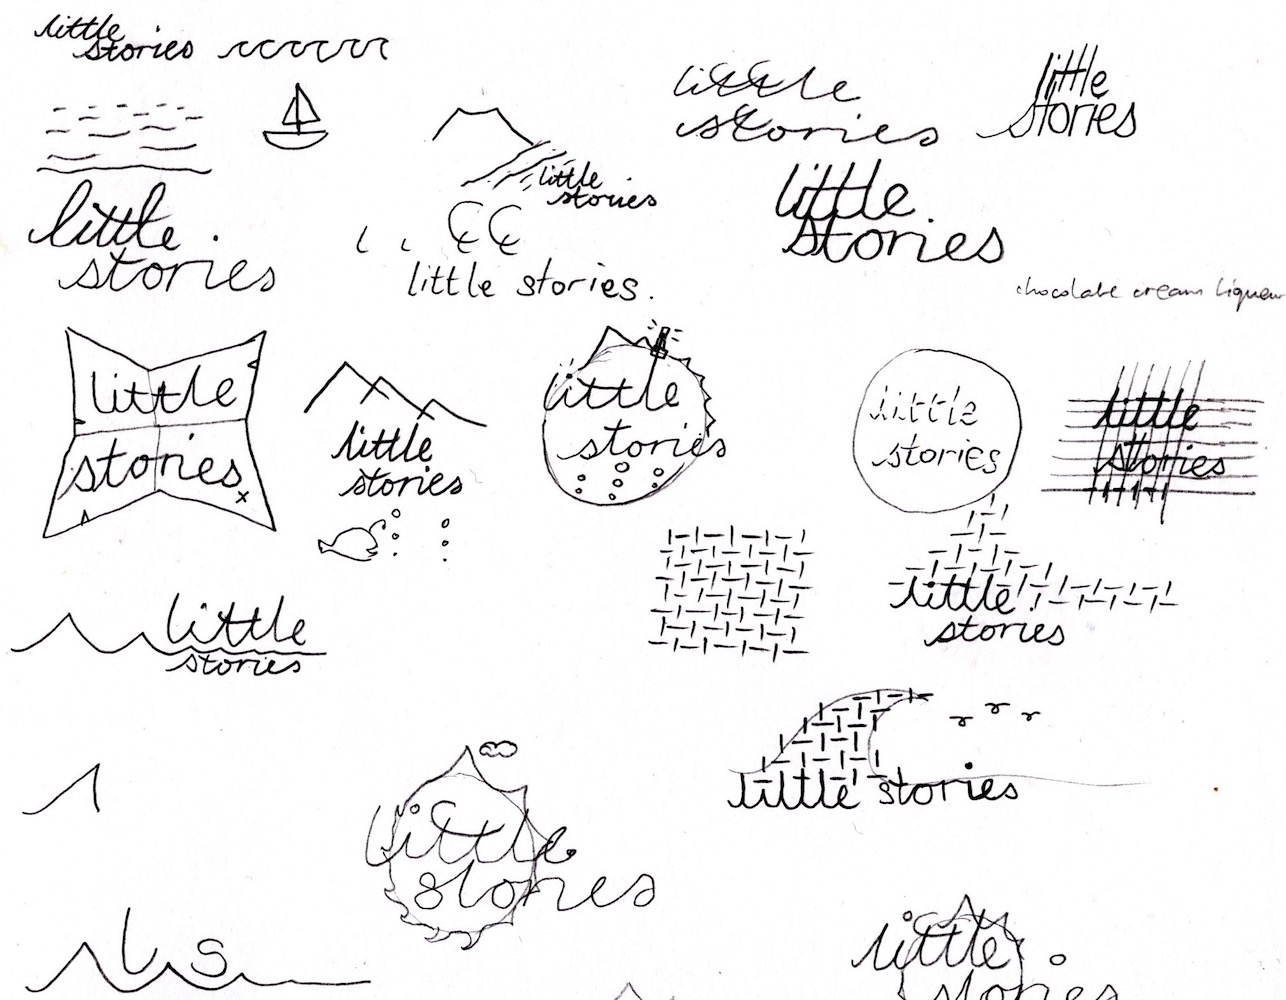 little
stories
little
stories
little
stories
little
stories
little
stories
little
stories
little stories.
chocolate cream liqueur
little
stories
little
stories
little
stories
little
stories
little
stories
little
stories
little
stories
little stories
little
stories
L S
little
stories